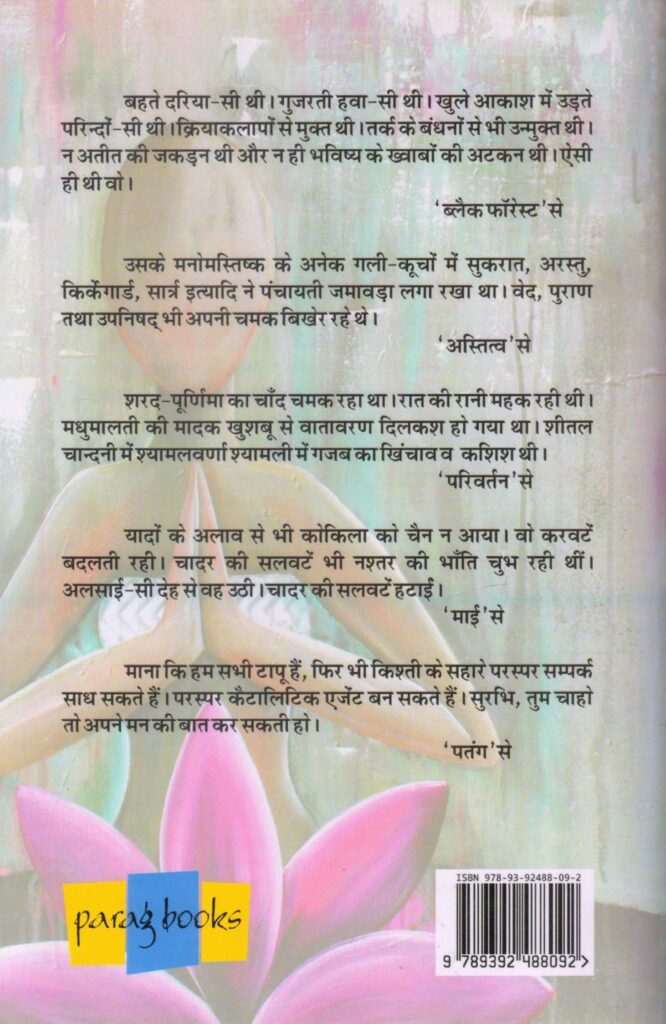 बहते दरिया-सी थी। गुजरती हवा-सी थी। खुले आकाश में उड़ते
परिन्दों-सी थी। क्रियाकलापों से मुक्त थी। तर्क के बंधनों से भी उन्मुक्त थी।
न अतीत की जकड़न थी और न ही भविष्य के ख्वाबों की अटकन थी। ऐसी
ही थी वो।
'ब्लैक फॉरेस्ट' से
उसके मनोमस्तिष्क के अनेक गली-कूचों में सुकरात, अरस्तु,
किर्केगार्ड, सार्त्र इत्यादि ने पंचायती जमावड़ा लगा रखा था। वेद, पुराण
तथा उपनिषद् भी अपनी चमक बिखेर रहे थे।
'अस्तित्व' से
शरद-पूर्णिमा का चाँद चमक रहा था। रात की रानी महक रही थी।
मधुमालती की मादक खुशबू से वातावरण दिलकश हो गया था। शीतल
चान्दनी में श्यामलवर्णा श्यामली में गजब का खिंचाव व कशिश थी।
'परिवर्तन' से
यादों के अलाव से भी कोकिला को चैन न आया। वो करवटें
बदलती रही। चादर की सलवटें भी नश्तर की भाँति चुभ रही थीं।
अलसाई-सी देह से वह उठी। चादर की सलवटें हटाईं।
'माई' से
माना कि हम सभी टापू हैं, फिर भी किश्ती के सहारे परस्पर सम्पर्क
साध सकते हैं। परस्पर कैटालिटिक एजेंट बन सकते हैं। सुरभि, तुम चाहो
तो अपने मन की बात कर सकती हो।
'पतंग' से
parag books
ISBN 978-93-92488-09-2
9 789392 488092